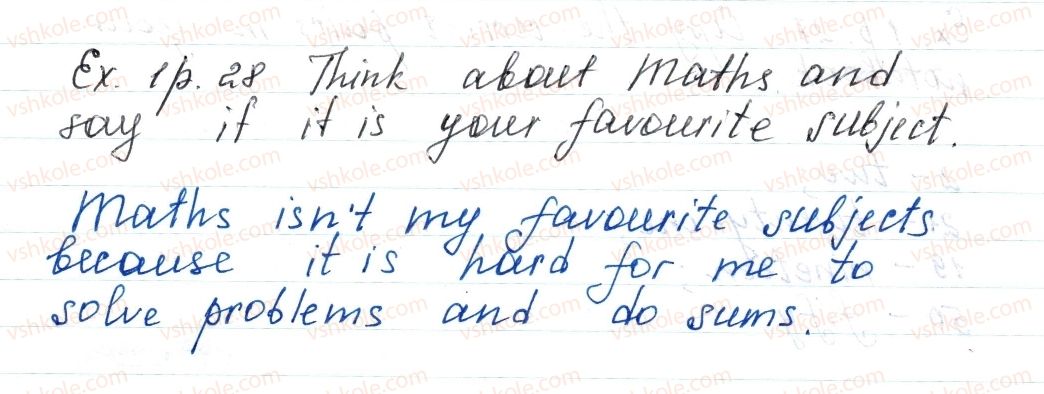 Ex. 1 p. 28 Think about Maths and
say if it is your favourite subject.
Maths isn't my favourite subjects
because it is hard for me to
solve problems and do sums.